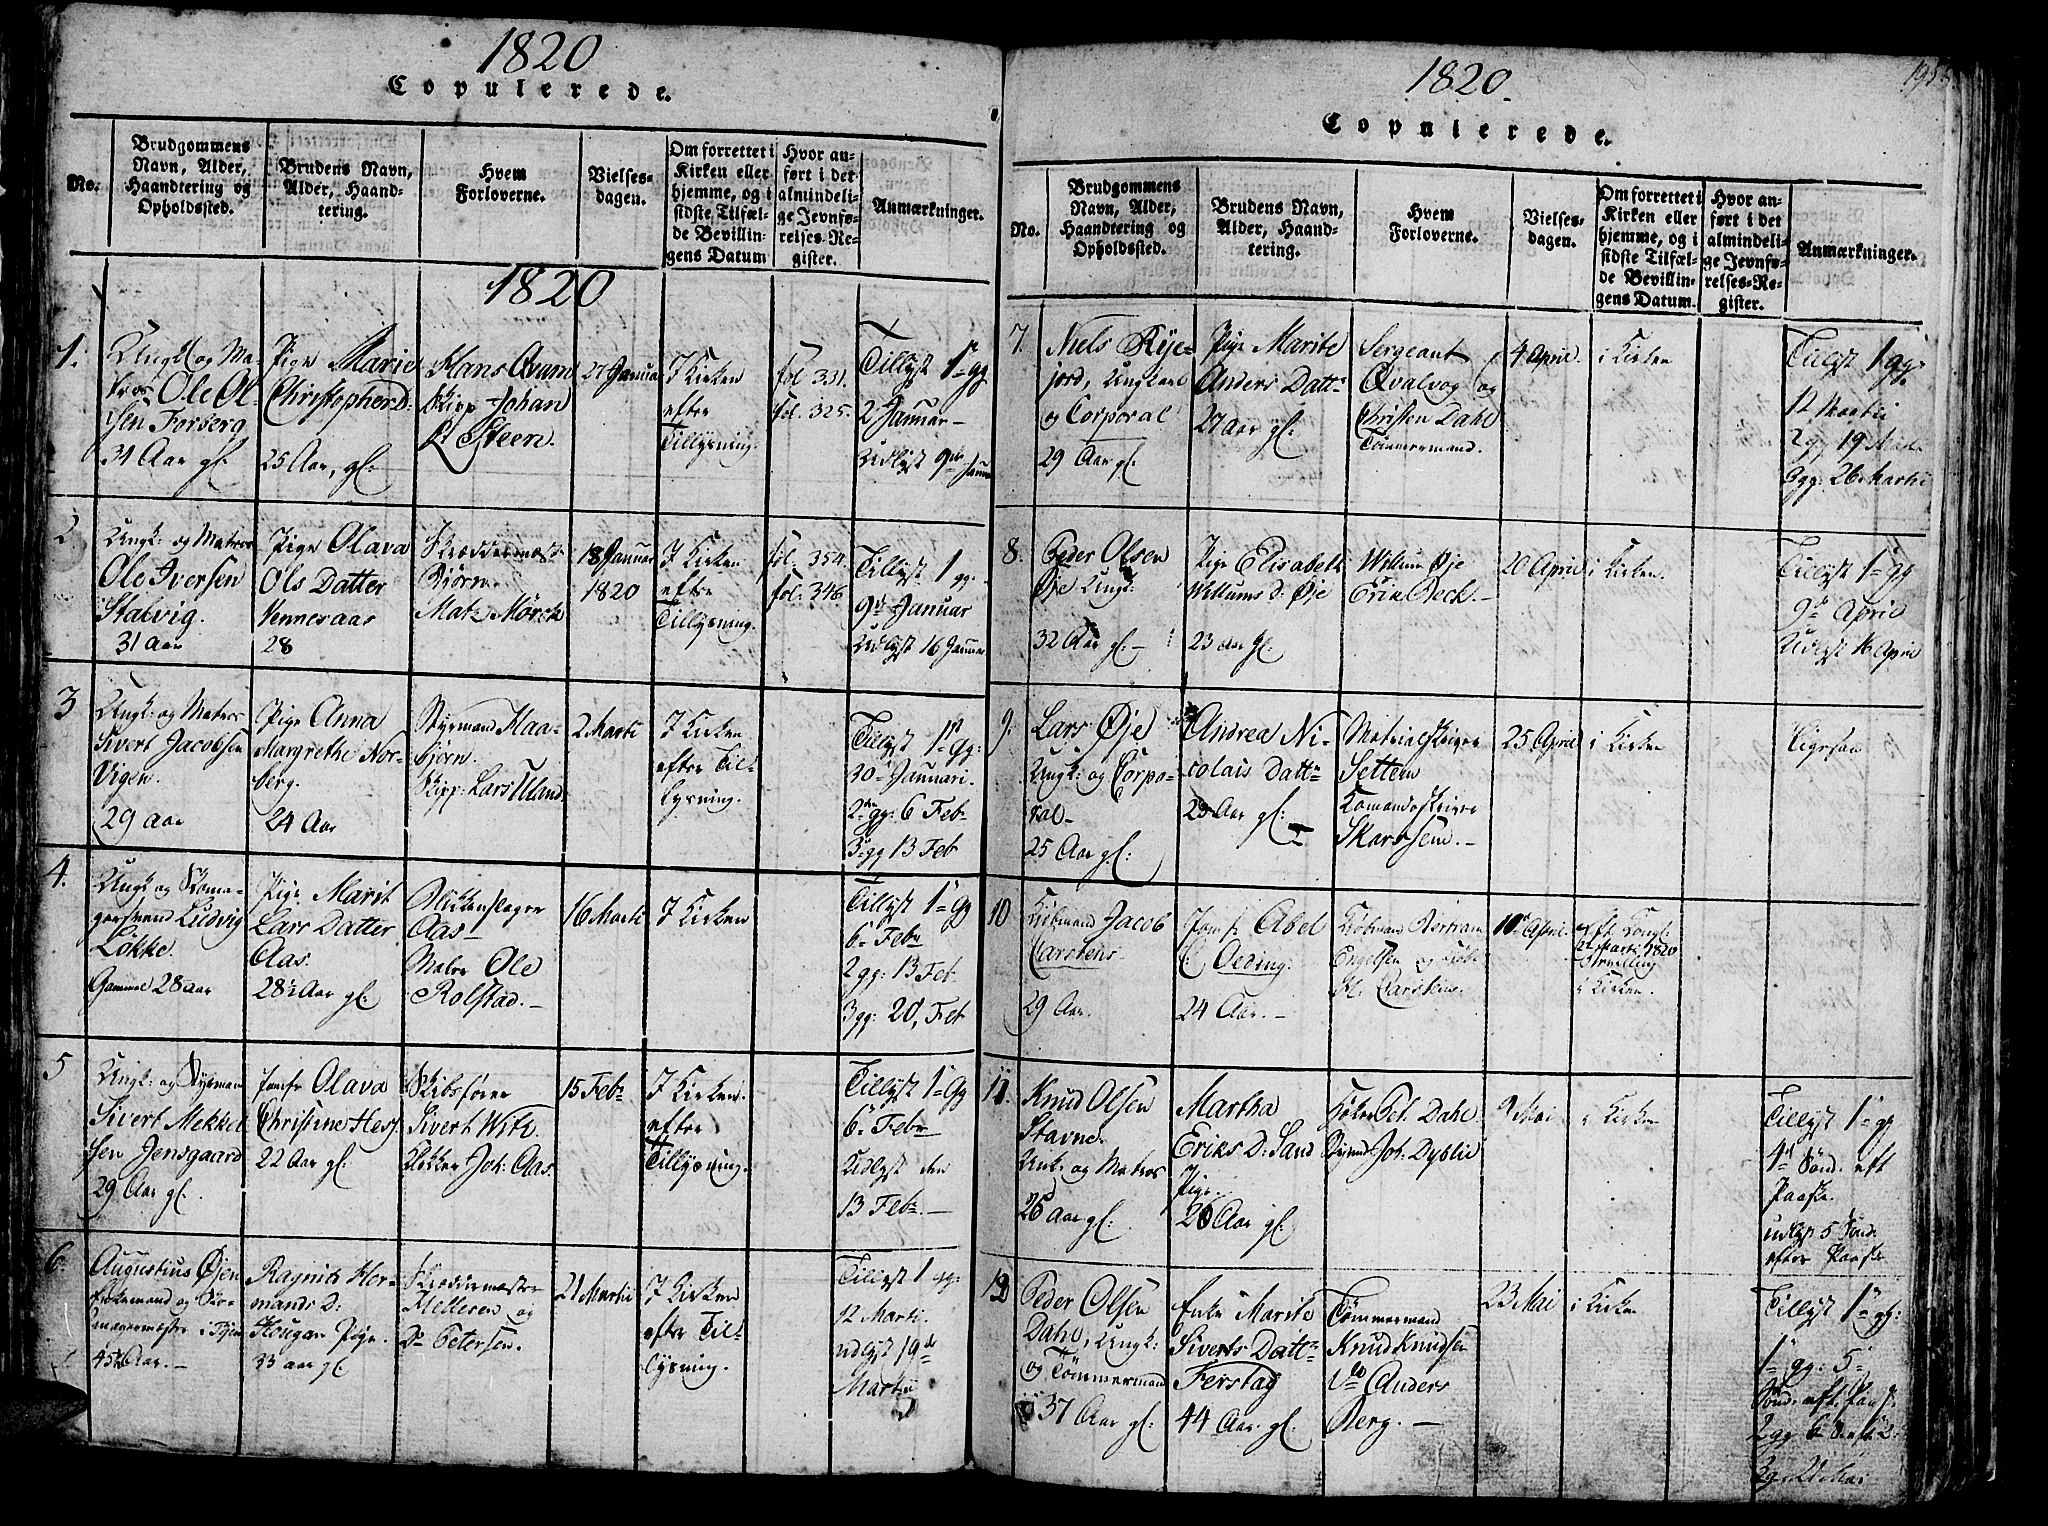 1820
Copulerede.
No.
Brudgommens
Navn, Alder,
Haandtering og
Opholdssted.
Brudens Navn,
Alder, Haand-
tering.
Hvem
Forloverne.
Vielses-
dagen.
Om forrettet i
Kirken eller
hjemme, og i
sidste Tilfæl-
de Bevillin-
gens Datum
Hvor an-
ført i det
almindeli-
ge Jevnfø-
relses-Re-
gister.
Anmærkninger.
1820
1.
Ungk og Ma-
tros Ole Ol-
sen Forberg
31 Aar gl.
Pige Marie
Christopher D:
25 Aar, gl:
Hans Qvam
Skipp Johan
Steen.
27 Januar
I Kirken
efter
Tillysning.
fol 331.
fol. 325.
Tillyst 1 gg
2 Januar
Udlyst 9de Januar
2
Ungk: og Matros
Ole Iversen
Stalvig.
31 Aar
Pige Olava
Ols Datter
Vennesaas
28
Skreddermest:
Bjørn
Matz Mörch
18 Januar
1820
I Kirken
efter
Tillysning.
fol: 354.
fol: 346
Tillyst 1 gg:
9de Januar
Udlyst 16 Januar
3
Ungk: og Matros
Sivert Jacobsen
Vigen.
29 aar
Pige Anna
Margrethe Nor-
berg.
24 Aar
Styrmand Haa-
bjørn.
Skipp: Lars Uland.
2 Marti
I Kirken
efter Til-
lysning.
Tillyst 1 gg:
30 Januari.
2 gg: 6 Feb
3 gg 13 Feb
4.
Ungk og Skoma-
gersvend Ludvig
Løkke.
Gammel 28 aar
Pige Marit
Lars Datter
Aas.
28½ Aar gl:
Blikkenslager
Aas
Maler Ole
Rolstad.
16 Marti
I Kirken
Tillyst 1 Gg
6 Febr
2 gg: 13 Feb.
3 gg: 20, Feb
5
Ungk: og Styrmand
Sivert Mekkel
sen Jensgaard
29 Aar gl.
Jomfr Olava
Christine Hess.
22 Aar gl.
Skibsfører
Sivert Witz.
Klokker Joh: Aas.
15 Febr
I Kirken.
efter
Tillysning.
Tillyst 1 Gg
6 Febr
Udlyst den
13 Febr.
6.
Augustius Øjen
Enkemand og Sko-
magermester i Byen
45½ Aar.
Ragnild Her-
mands D:
Hougan Pige.
33 aar gl.
Skreddermester
Melleren og
Do Petersen.
21 Martii
I Kirken
efter Til-
lysning.
Tillyst 1 gg:
12 Marti.
udlyst 19de
Martii
1820.
195
Copulerede.
No.
Brudgommens
Navn, Alder,
Haandtering og
Opholdssted.
Brudens Navn,
Alder, Haand-
tering.
Hvem
Forloverne.
Vielses-
dagen.
Om forrettet i
Kirken eller
hjemme, og i
sidste Tilfæl-
de Bevillin-
gens Datum.
Hvor an-
ført i det
almindeli-
ge Jevnfø-
relses-Re-
gister.
Anmærkninger.
7.
Niels Reje-
jord, Ungkarl
og Corporal
29 Aar gl.
Pige Marite
Anders Datt
27 Aar gl:
Sergeant
Qvalvog og
Christen Dahl
Tømmermand.
4 April.
i Kirken
Tillyst 1 gg:
12 Martii
2 gg 19
3 gg: 26 Martii
8.
Peder Olsen
Øje Ungk:
32 Aar gl.
Pige Elisabeth
Willums D: Øje
23 aar gl.
Willum Øje
Erik Beck.
20 April
i Kirken.
Tillyst 1 gg
9de April
Udlyst 16 April
9.
Lars Øje
Ungk: og Corpo-
ral
25 Aar gl:
Andrea Ni-
colais Datt
23 Aar gl:
Matrialskriver
Settem
Komandoskriver
Skarssem.
25 April
i Kirken
Ligesaa
10
Kjøbmand Jacob
Carstens
29 Aar.
Jomfr Abel
C: Oeding.
24 Aar.
Kjøbmand Bertram
Engelsen og Kjøb
H. Carstens.
10 April.
eft Kongl
Marti 1820
Bevilling
i Kirken.
11.
Knud Olsen
Stavne
Unk: og Matros
26 aar gl:
Martha
Eriks D: Sand
Pige.
26 Aar gl:
Pet. Dahl
Joh: Dyblie
9 Mai
i Kirken
Tillyst 1 gg
4de Sønd. eft
Paaske.
udlyst 5 Sønd.
efter Paaske
12
Peder Olsen
Dahl, Ungk:
og Tømmermand
37 Aar gl:
Enke Marite
Siverts Datt
Ferstad
44 Aar gl:
Tømmermand
Knud Knudsen
Do Anders
Berg.
23 Mai
i Kirken
Tillyst 1 gg:
1 gg: 5
Sønd. eft. Paask
2 gg 6
3 g. 21 Mai